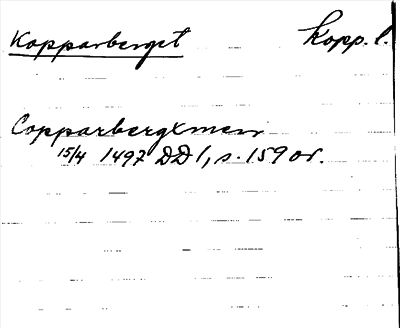 Kopparberget Kopp. l.
Copparbergxmen
15/4 1497 DD 1, s. 159 or.